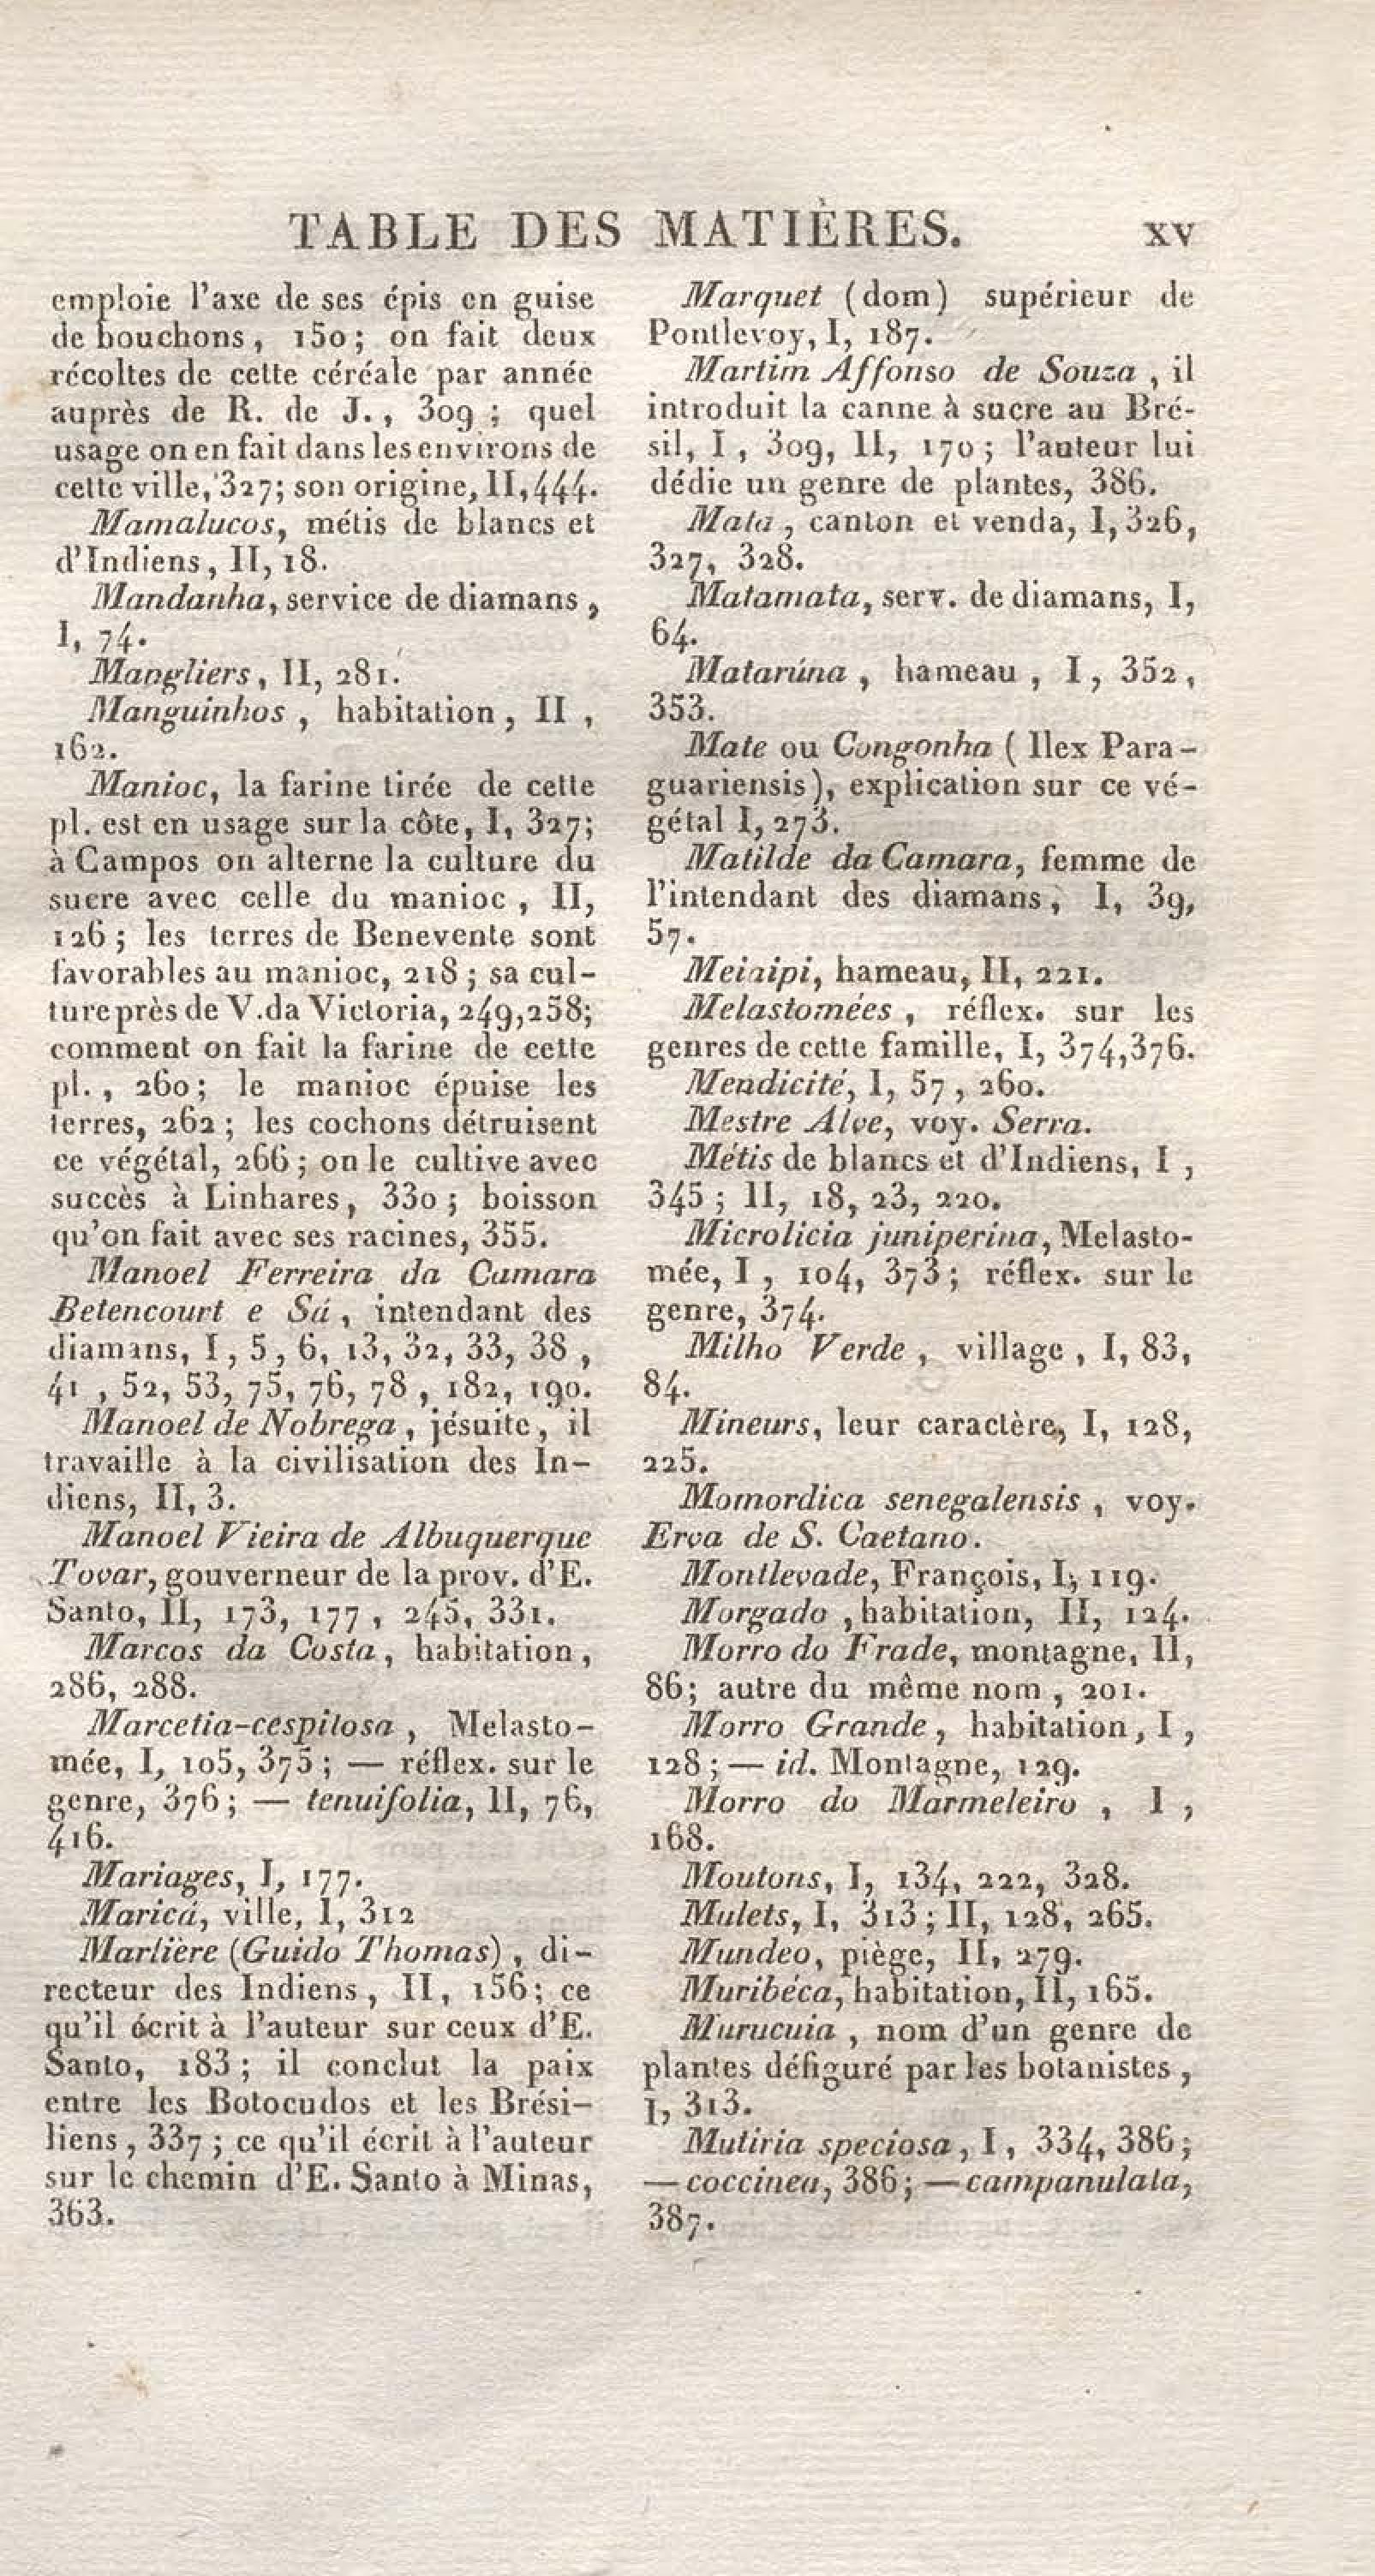 TABLE DES MATIÈRES. xv
emploie l'axe de ses épis en guise
de bouchons, 150; on fait deux
récoltes de cette céréale par année
auprès de R. de J., 309; quel
usage on en fait dans les environs de
cette ville, 327; son origine, II, 444.
Mamalucos, métis de blancs et
d'Indiens, II, 18.
Mandanha, service de diamans,
I, 74.
Mangliers, II, 281.
Manguinhos, habitation, II,
162.
Manioc, la farine tirée de cette
pl. est en usage sur la côte, I, 327;
à Campos on alterne la culture du
sucre avec celle du manioc, II,
126; les terres de Benevente sont
favorables au manioc, 218; sa cul-
ture près de V. da Victoria, 249, 258;
comment on fait la farine de cette
pl., 260; le manioc épuise les
terres, 262; les cochons détruisent
ce végétal, 266; on le cultive avec
succès à Linhares, 330; boisson
qu'on fait avec ses racines, 355.
Manoel Ferreira da Camara
Betencourt e Sá, intendant des
diamans, I, 5, 6, 13, 32, 33, 38,
41, 52, 53, 75, 76, 78, 182, 190.
Manoel de Nobrega, jésuite, il
travaille à la civilisation des In-
diens, II, 3.
Manoel Vieira de Albuquerque
Tovar, gouverneur de la prov. d'E.
Santo, II, 173, 177, 245, 331.
Marcos da Costa, habitation,
286, 288.
Marcetia-cespitosa, Melasto-
mée, I, 105, 375; — réflex. sur le
genre, 376; — tenuifolia, II, 76,
416.
Mariages, I, 177.
Maricá, ville, I, 312
Marlière (Guido Thomas), di-
recteur des Indiens, II, 156; ce
qu'il écrit à l'auteur sur ceux d'E.
Santo, 183; il conclut la paix
entre les Botocudos et les Brési-
liens, 337; ce qu'il écrit à l'auteur
sur le chemin d'E. Santo à Minas,
363.
Marquet (dom) supérieur de
Pontlevoy, I, 187.
Martim Affonso de Souza, il
introduit la canne à sucre au Bré-
sil, I, 309, II, 170; l'auteur lui
dédie un genre de plantes, 386.
Mata, canton et venda, I, 326,
327, 328.
Matamata, serv. de diamans, I,
64.
Matarúna, hameau, I, 352,
353.
Mate ou Congonha (Ilex Para-
guariensis), explication sur ce vé-
gétal I, 273.
Matilde da Camara, femme de
l'intendant des diamans, I, 39,
57.
Meiaipi, hameau, II, 221.
Melastomées, réflex. sur les
genres de cette famille, I, 374, 376.
Mendicité, I, 57, 260.
Mestre Alve, voy. Serra.
Métis de blancs et d'Indiens, I,
345; II, 18, 23, 220.
Microlicia juniperina, Melasto-
mée, I, 104, 373; réflex. sur le
genre, 374.
Milho Verde, village, I, 83,
84.
Mineurs, leur caractère, I, 128,
225.
Momordica senegalensis, voy.
Erva de S. Caetano.
Montlevade, François, I, 119.
Morgado, habitation, II, 124.
Morro do Frade, montagne, II,
86; autre du même nom, 201.
Morro Grande, habitation, I,
128; — id. Montagne, 129.
Morro do Marmeleiro, I,
168.
Moutons, I, 134, 222, 328.
Mulets, I, 313; II, 128, 265.
Mundeo, piège, II, 279.
Muribéca, habitation, II, 165.
Murucuia, nom d'un genre de
plantes défiguré par les botanistes,
I, 313.
Mutiria speciosa, I, 334, 386;
— coccinea, 386; — campanulata,
387.